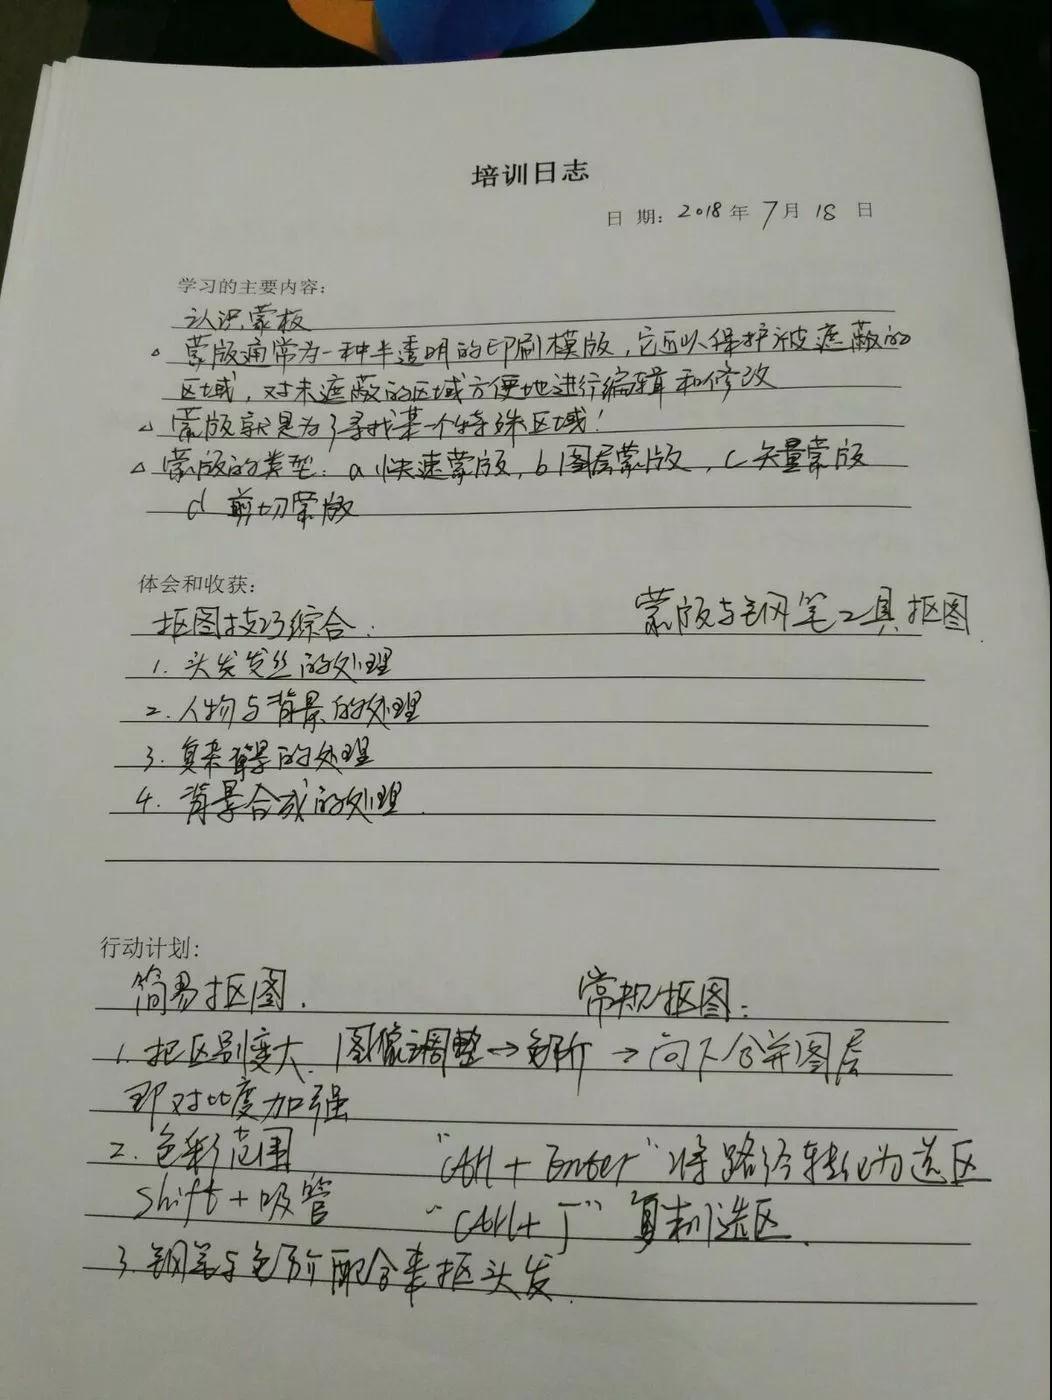 培训日志
日 期: 2018 年 7 月 18 日
学习的主要内容:
认识蒙板
蒙版通常为一种半透明的印刷模版，它可以保护被遮蔽的
区域，对未遮蔽的区域方便地进行编辑和修改
蒙版就是为了寻找某一个特殊区域！
蒙版的类型: a 快速蒙版, b 图层蒙版, c 矢量蒙版
d 剪切蒙版
体会和收获:
抠图技巧综合: 蒙版与钢笔工具抠图.
1. 头发发丝的处理
2. 人物与背景的处理
3. 复杂背景的处理
4. 背景合成的处理.
行动计划:
简易抠图. 常规抠图:
1. 把区别变大. 图像调整→色阶→向下合并图层
即对比度加强
2. 色彩范围 "Ctrl + Enter" 将路径转化为选区
Shift + 吸管 "Ctrl + J" 复制选区.
3. 钢笔与色阶配合来抠头发.